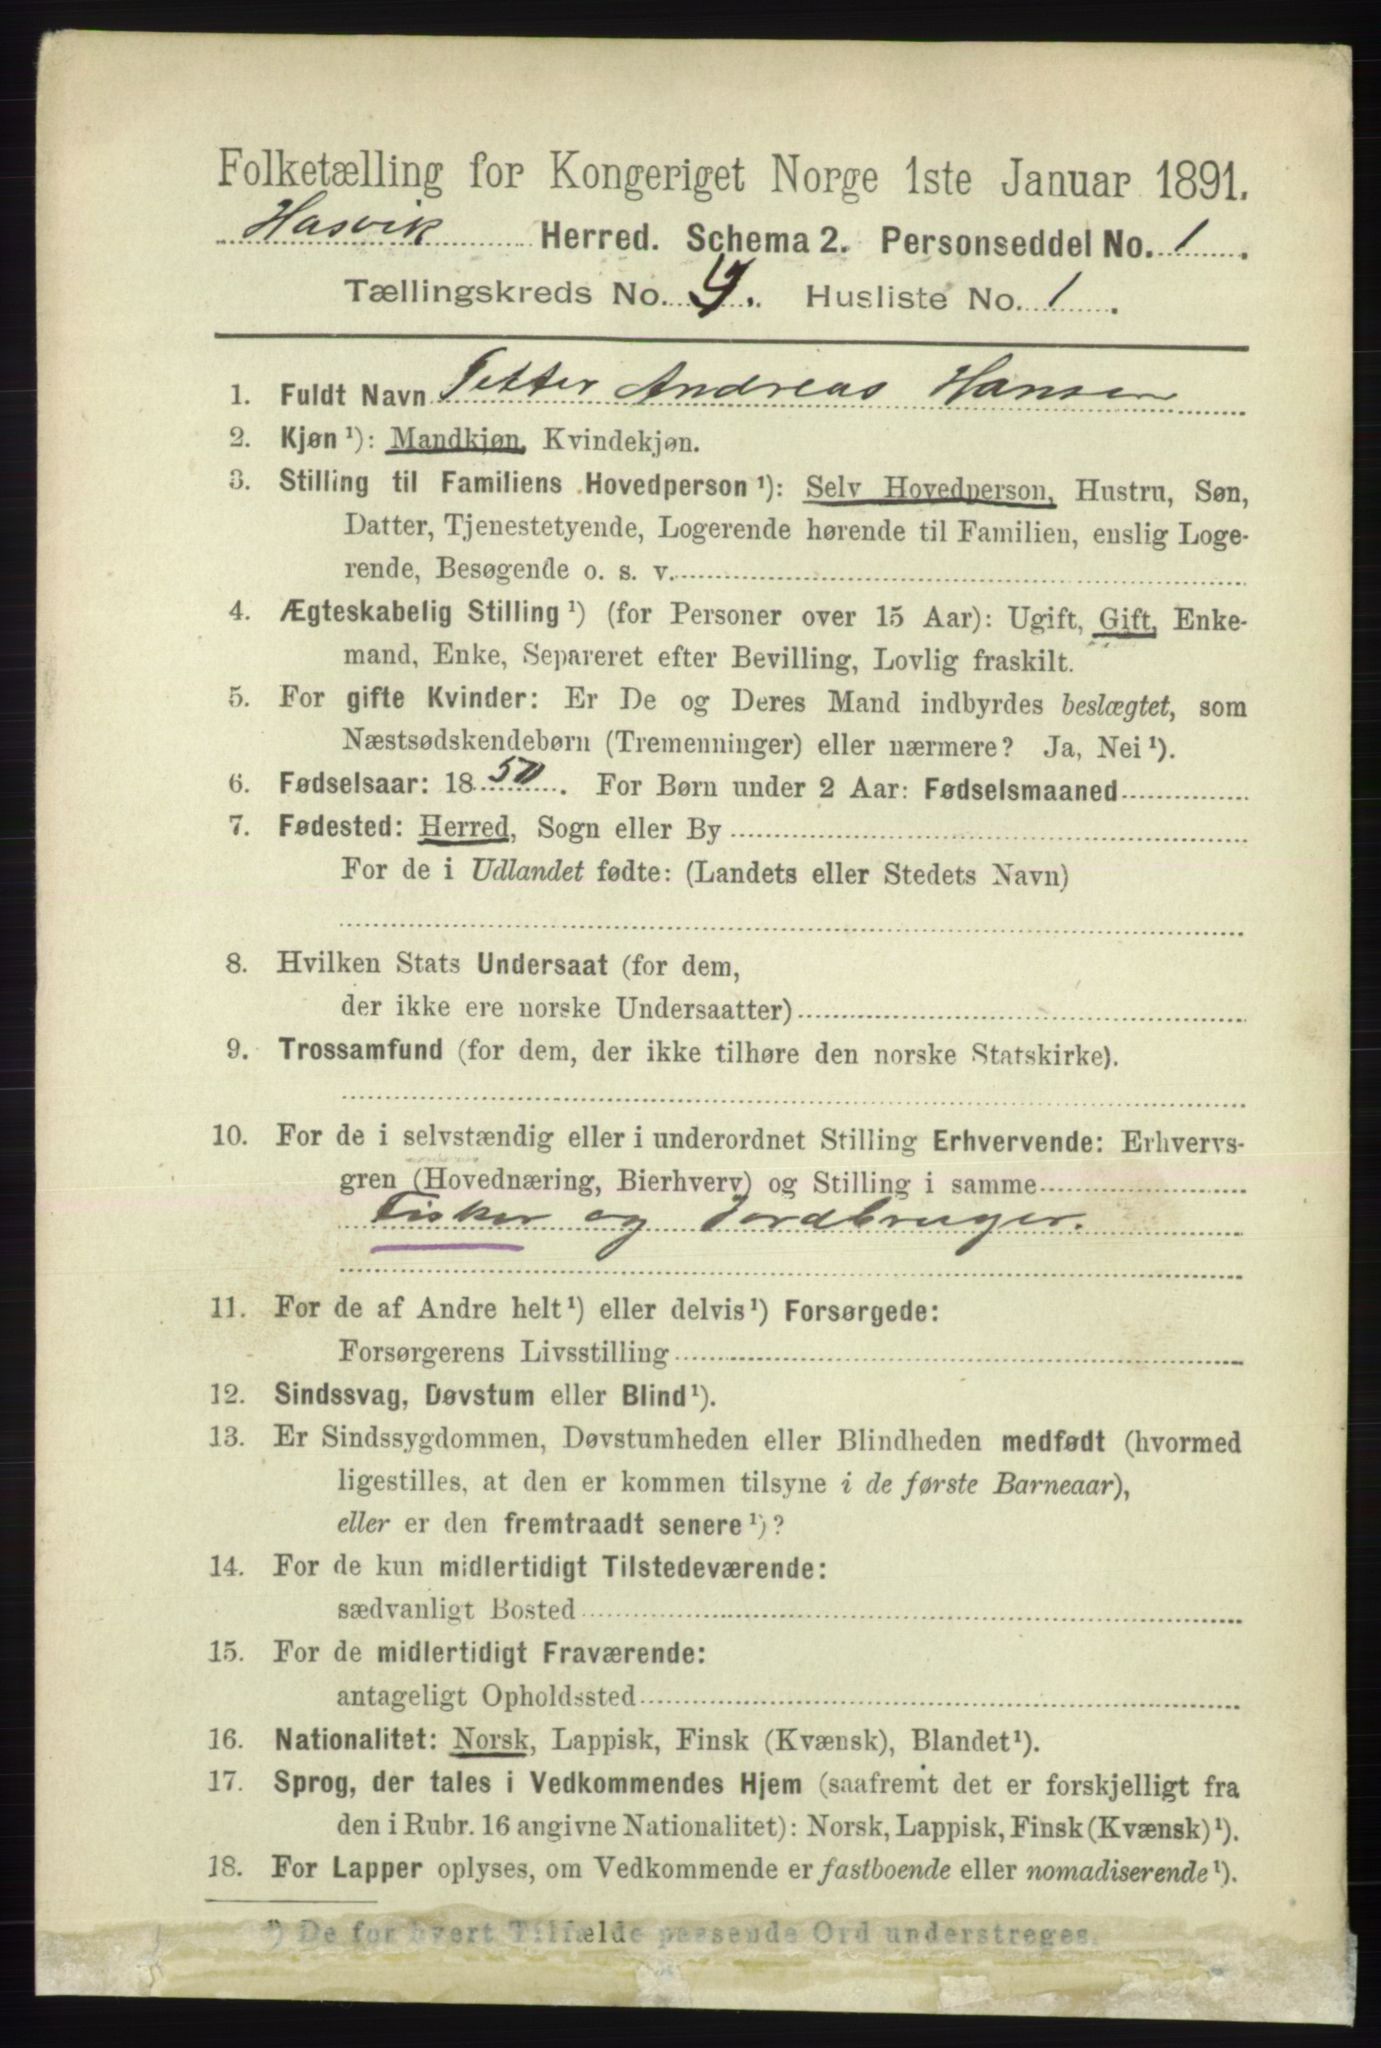 Folketælling for Kongeriget Norge 1ste Januar 1891.
Hasvik Herred. Schema 2. Personseddel No. 1.
Tællingskreds No. Husliste No. 1.
1. Fuldt Navn Petter Andreas Hansen
2. Kjøn ¹): Mandkjøn, Kvindekjøn.
3. Stilling til Familiens Hovedperson ¹): Selv Hovedperson, Hustru, Søn,
Datter, Tjenestetyende, Logerende hørende til Familien, enslig Loge-
rende, Besøgende o. s. v.
4. Ægteskabelig Stilling ¹) (for Personer over 15 Aar): Ugift, Gift, Enke-
mand, Enke, Separeret efter Bevilling, Lovlig fraskilt.
5. For gifte Kvinder: Er De og Deres Mand indbyrdes beslægtet, som
Næstsødskendebørn (Tremenninger) eller nærmere? Ja, Nei ¹).
6. Fødselsaar: 18 . For Børn under 2 Aar: Fødselsmaaned
7. Fødested: Herred, Sogn eller By
For de i Udlandet fødte: (Landets eller Stedets Navn)
8. Hvilken Stats Undersaat (for dem,
der ikke ere norske Undersaatter)
9. Trossamfund (for dem, der ikke tilhøre den norske Statskirke).
10. For de i selvstændig eller i underordnet Stilling Erhvervende: Erhvervs-
gren (Hovednæring, Bierhverv) og Stilling i samme
Fisker og Jordbruger.
11. For de af Andre helt ¹) eller delvis ¹) Forsørgede:
Forsørgerens Livsstilling
12. Sindssvag, Døvstum eller Blind ¹).
13. Er Sindssygdommen, Døvstumheden eller Blindheden medfødt (hvormed
ligestilles, at den er kommen tilsyne i de første Barneaar),
eller er den fremtraadt senere ¹)?
14. For de kun midlertidigt Tilstedeværende:
sædvanligt Bosted
15. For de midlertidigt Fraværende:
antageligt Opholdssted
16. Nationalitet: Norsk, Lappisk, Finsk (Kvænsk), Blandet ¹).
17. Sprog, der tales i Vedkommendes Hjem (saafremt det er forskjelligt fra
den i Rubr. 16 angivne Nationalitet): Norsk, Lappisk, Finsk (Kvænsk) ¹).
18. For Lapper oplyses, om Vedkommende er fastboende eller nomadiserende ¹).
¹) De for hvert Tilfælde passende Ord understreges.